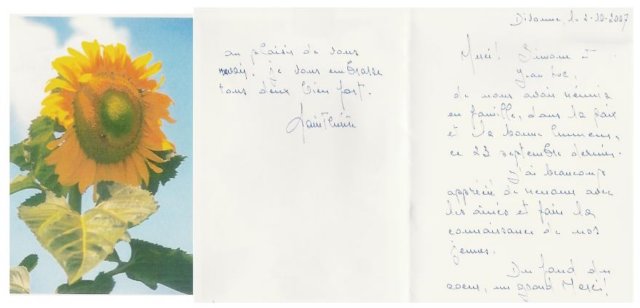 le 2-10-2007
Merci! Simone et
Jean Luc,
de nous avoir réunis
en famille, dans la paix
et la bonne humeur,
ce 23 septembre dernier.
J'ai beaucoup
apprécié de renouer avec
les aînés et faire la
connaissance de nos
jeunes.
Du fond du
coeur, un grand Merci!
au plaisir de vous
revoir. Je vous embrasse
tous deux bien fort.